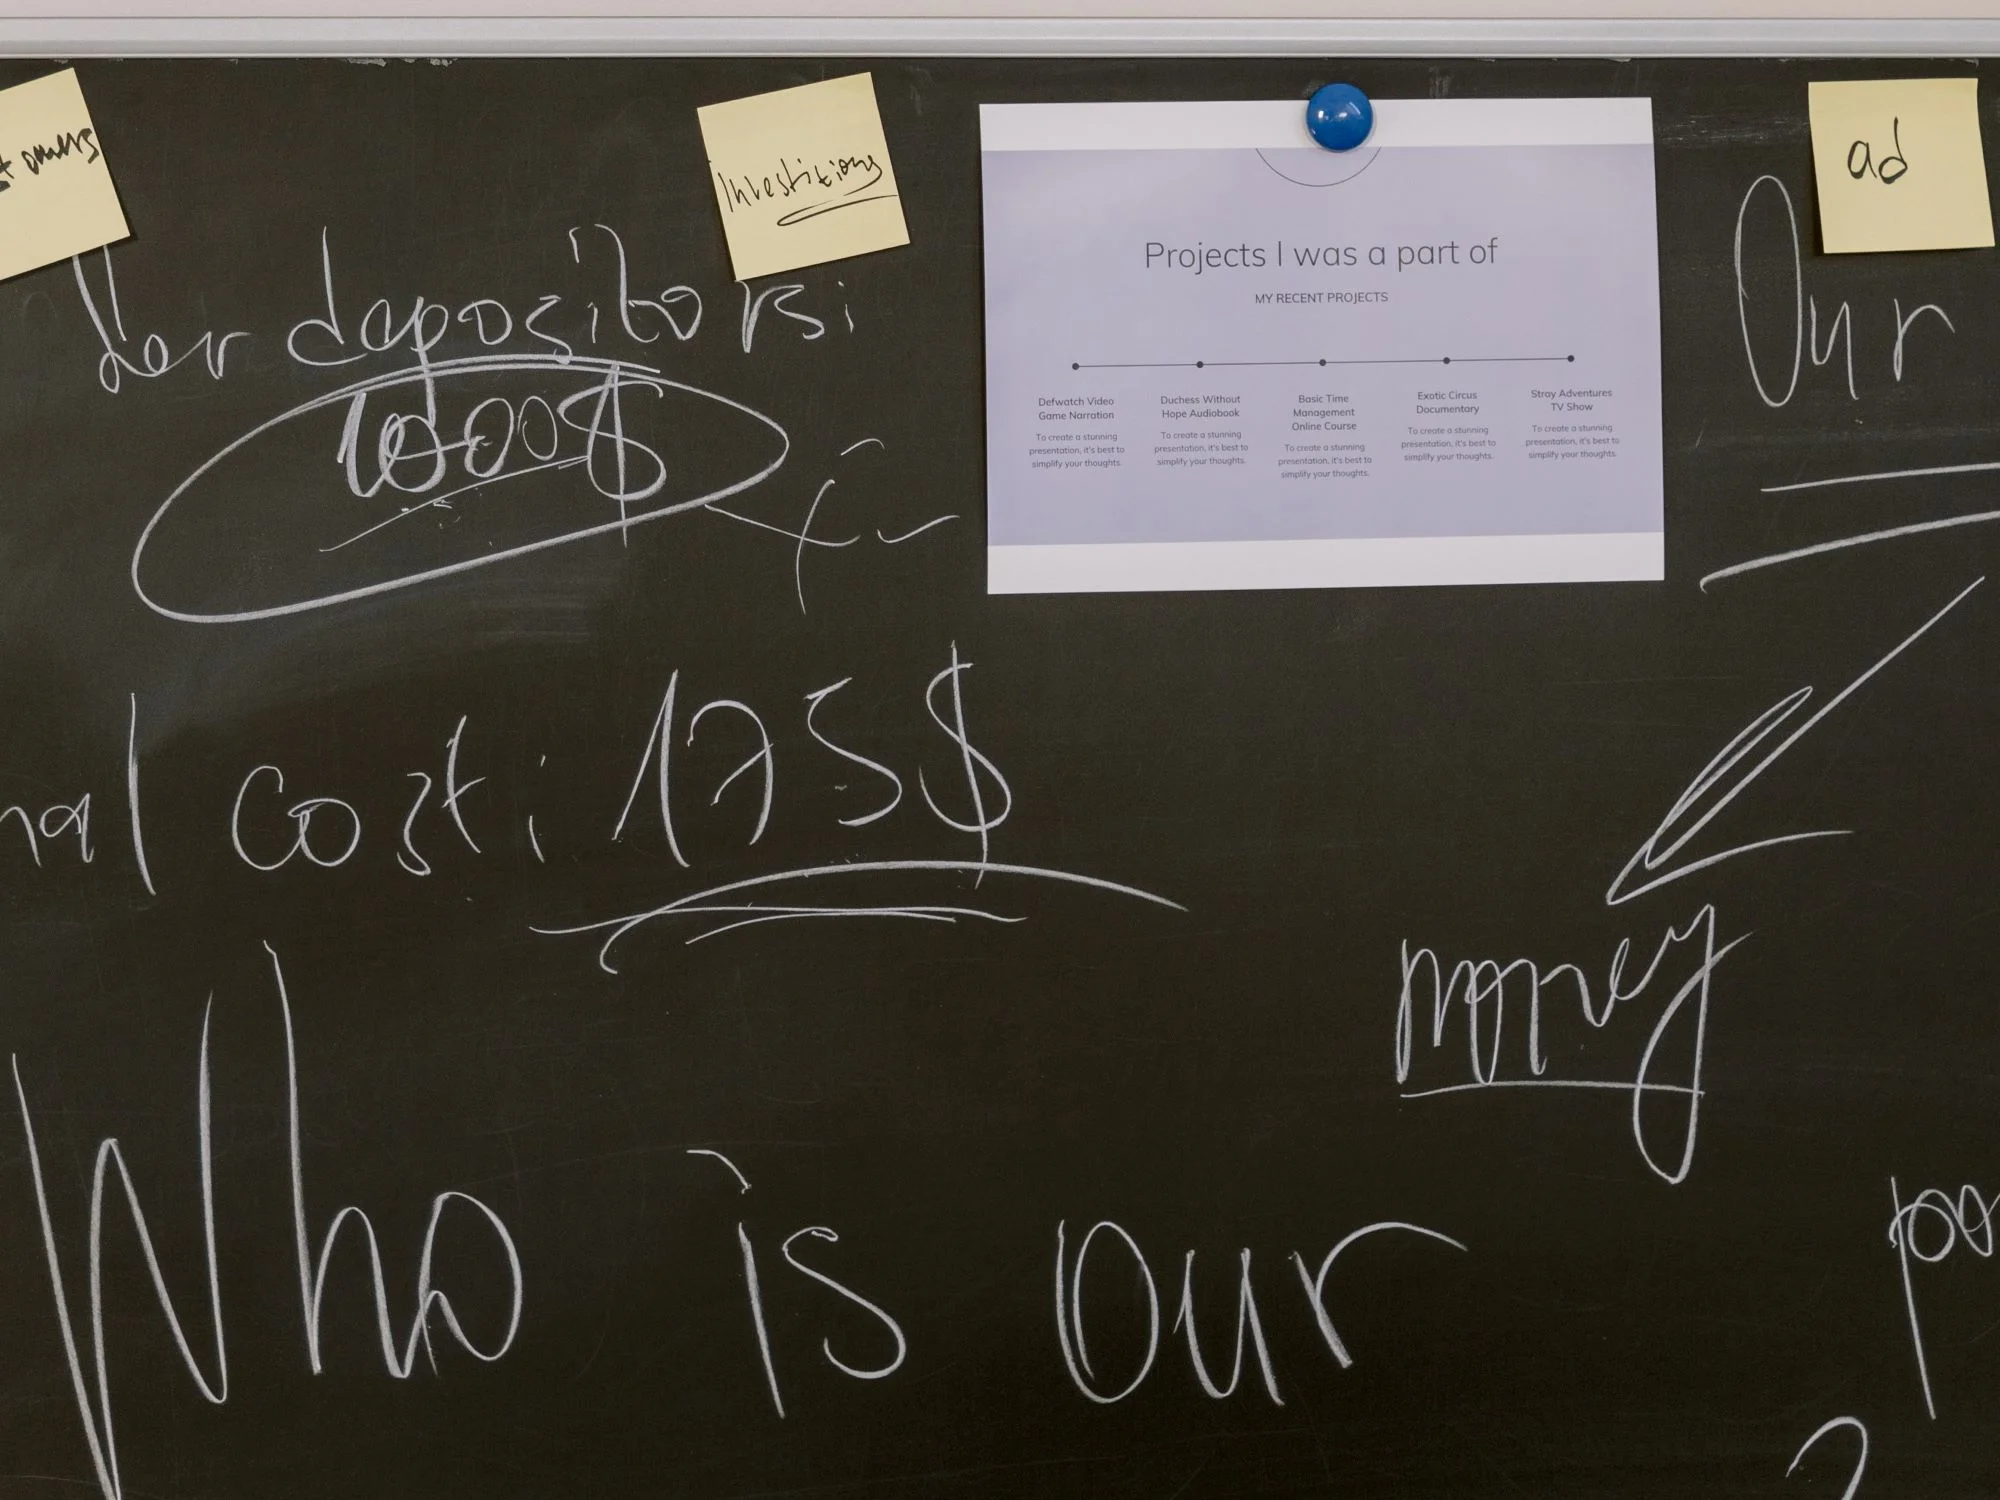 Investitions
ad
depositors:
1000$
Projects I was a part of
MY RECENT PROJECTS
Defwatch Video
Game Narration
To create a stunning
presentation, it's best to
simplify your thoughts.
Duchess Without
Hope Audiobook
To create a stunning
presentation, it's best to
simplify your thoughts.
Basic Time
Management
Online Course
To create a stunning
presentation, it's best to
simplify your thoughts.
Exotic Circus
Documentary
To create a stunning
presentation, it's best to
simplify your thoughts.
Stray Adventures
TV Show
To create a stunning
presentation, it's best to
simplify your thoughts.
Our
cost: 175$
money
Who is our
?